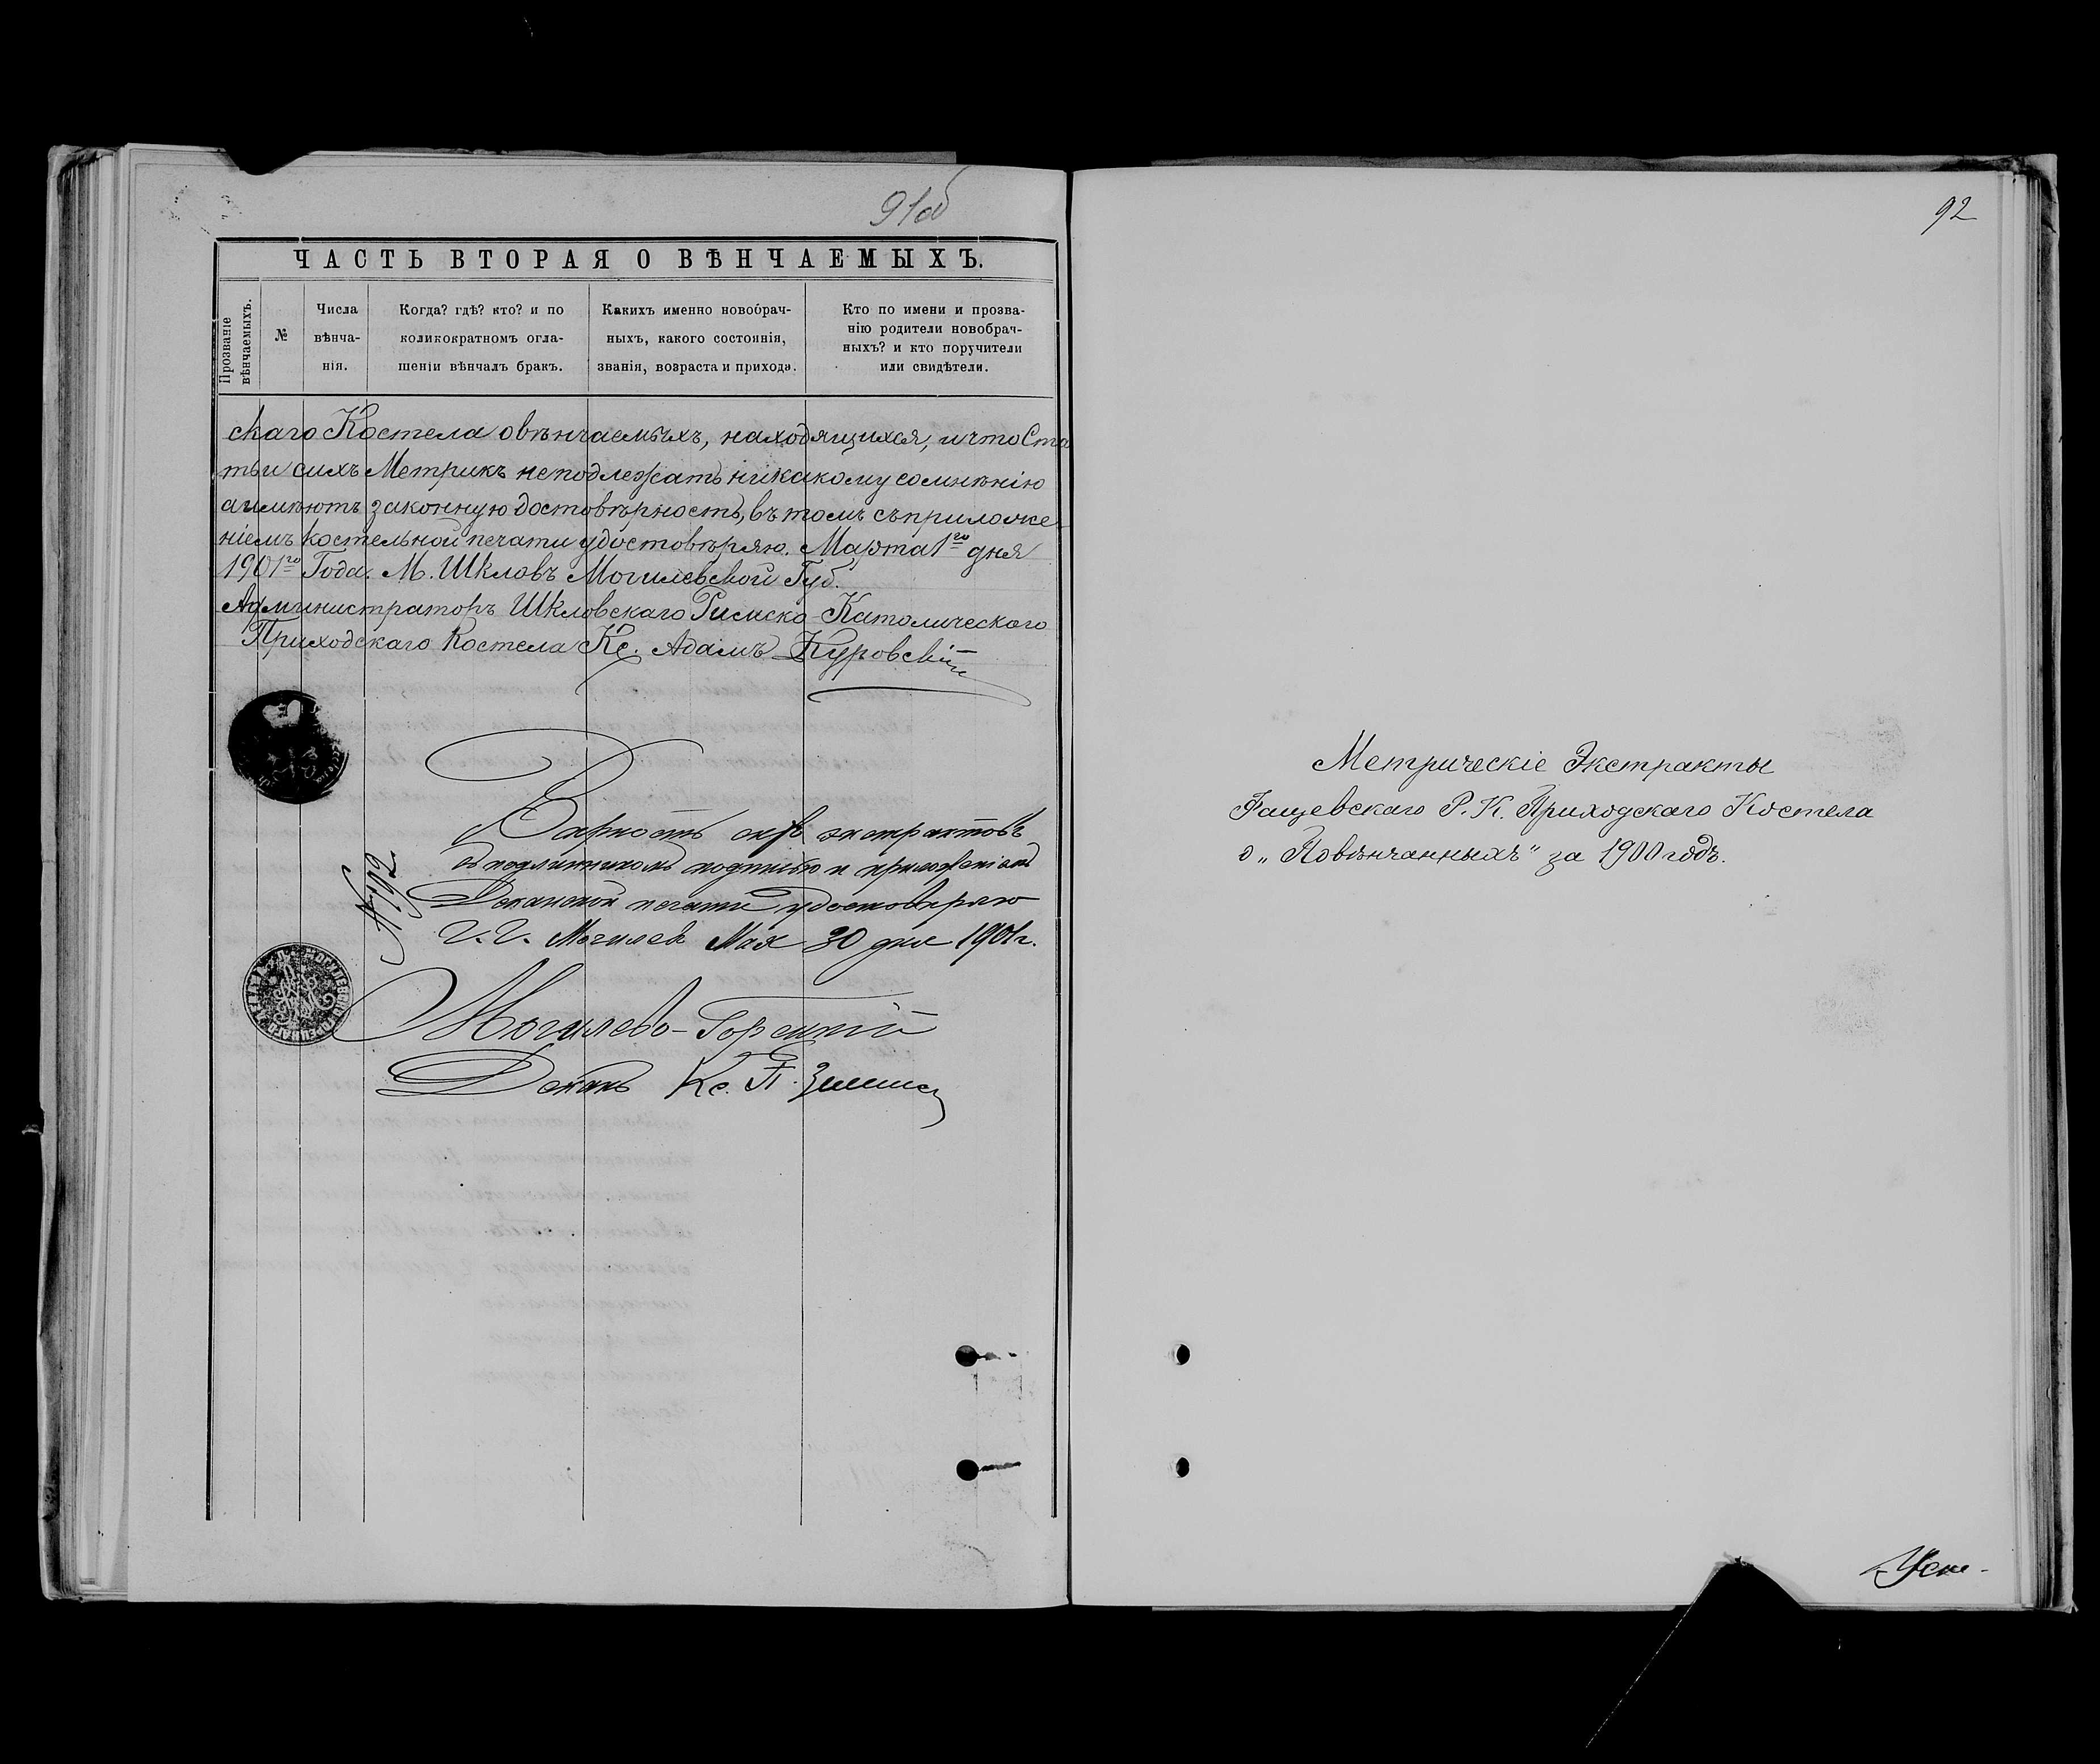 91об
ЧАСТЬ ВТОРАЯ О ВѢНЧАЕМЫХЪ.
Прозваніе вѣнчаемыхъ.
№
Числа
вѣнча-
нія.
Когда? гдѣ? кто? и по
коликократномъ огла-
шеніи вѣнчалъ бракъ.
Какихъ именно новобрач-
ныхъ, какого состоянія,
званія, возраста и прихода.
Кто по имени и прозва-
нію родители новобрач-
ныхъ? и кто поручители
или свидѣтели.
скаго Костела о вѣнчаемыхъ, находящихся, и что Ста
тьи сихъ Метрикъ неподлежатъ никакому сомнѣнію
а имѣютъ законную достовѣрность, въ томъ съ приложе-
ніемъ костельной печати удостовѣряю. Марта 1го дня
1901го Года. М. Шкловъ Могилевской Губ.
Администраторъ Шкловскаго Римско-Католическаго
Приходскаго Костела Кс. Адамъ Куровскій
Вѣрность сихъ экстрактовъ
съ подлинникомъ подписью и приложеніемъ
Деканской печати удостовѣряю
Г. Г. Могилевъ Мая 30 дня 1901 г.
Могилево-Горецкій
Деканъ Кс. П.
92
Метрическіе Экстракты
Фащевскаго Р. К. Приходскаго Костела
о „Повѣнчанныхъ" за 1900 годъ.